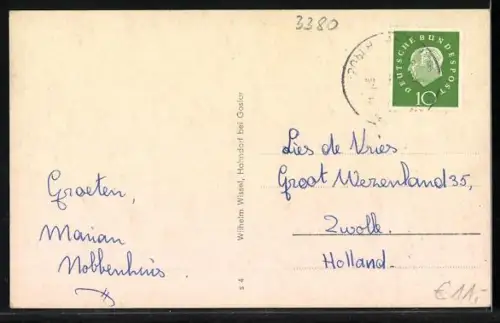 3380
DEUTSCHE BUNDESPOST
10
Groeten,
Marian
Nobbenhuis.
Wilhelm Wissel, Hahndorf bei Goslar
s 4
Lies de Vries.
Groot Wezenland 35,
Zwolle.
Holland.
€ 11,-